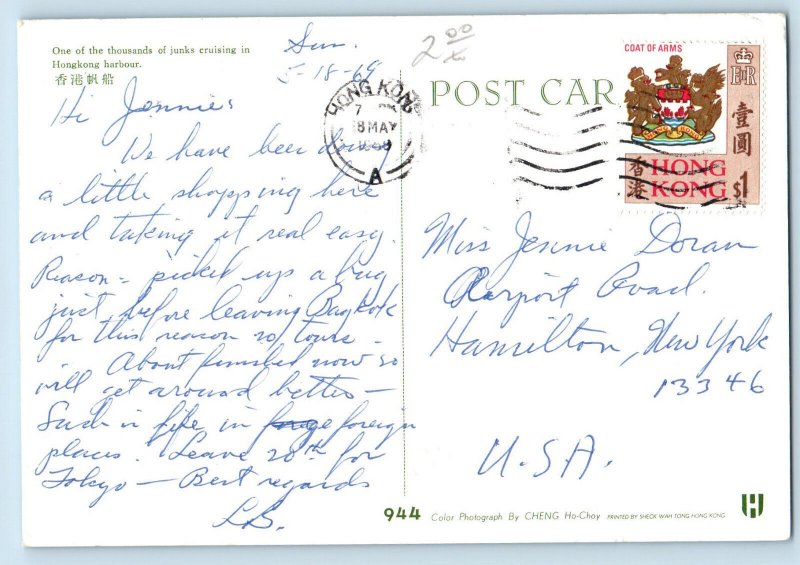 One of the thousands of junks cruising in
Hongkong harbour.
香港帆船
Sun.
5-18-69
2.00
Hi Jennie;
We have been doing
a little shopping here
and taking it real easy.
Reason = picked up a bug
just before leaving Bagkok
for this reason no tours -
About finished now so
will get around better -
Such is life in foreign
places. Leave 20th for
Tokyo - Best regards
L.B.
HONG KONG
7
8 MAY
A
POST CAR
COAT OF ARMS
E R
HONG KONG
壹圓
香港
HONG
KONG
$1
Miss Jennie Doran
Airport Road.
Hamilton, New York
13346
U.S.A.
944 Color Photograph By CHENG Ho-Choy PRINTED BY SHECK WAH TONG HONG KONG